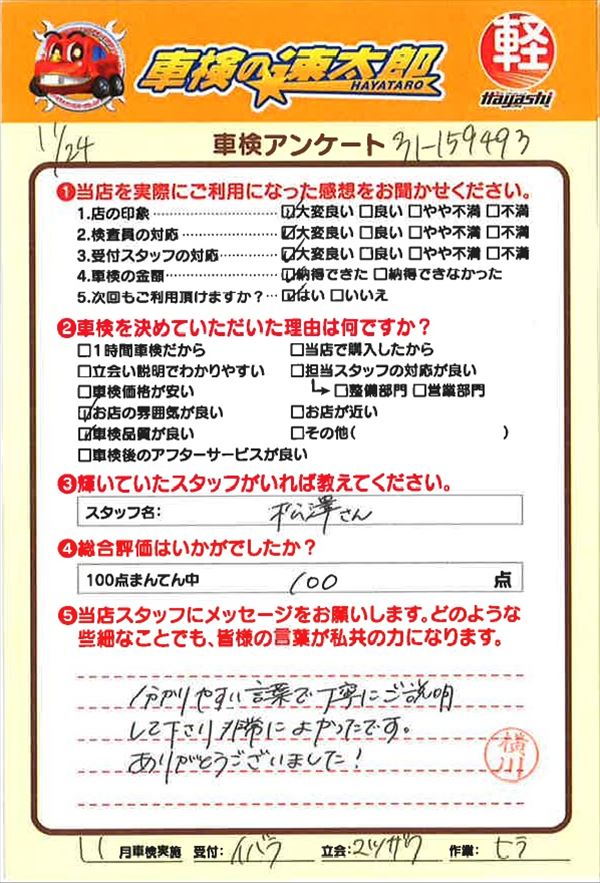 車検の速太郎
HAYATARO
軽
Hayashi
11/24
車検アンケート 31-159493
❶当店を実際にご利用になった感想をお聞かせください。
1.店の印象 ☑大変良い □良い □やや不満 □不満
2.検査員の対応 ☑大変良い □良い □やや不満 □不満
3.受付スタッフの対応 ☑大変良い □良い □やや不満 □不満
4.車検の金額 ☑納得できた □納得できなかった
5.次回もご利用頂けますか? ☑はい □いいえ
❷車検を決めていただいた理由は何ですか?
□1時間車検だから □当店で購入したから
□立会い説明でわかりやすい □担当スタッフの対応が良い
□車検価格が安い □整備部門 □営業部門
☑お店の雰囲気が良い □お店が近い
☑車検品質が良い □その他( )
□車検後のアフターサービスが良い
❸輝いていたスタッフがいれば教えてください。
スタッフ名: 松澤さん
❹総合評価はいかがでしたか?
100点まんてん中 100 点
❺当店スタッフにメッセージをお願いします。どのような
些細なことでも、皆様の言葉が私共の力になります。
分かりやすい言葉で丁寧にご説明
して下さり非常によかったです。
ありがとうございました!
横川
11 月車検実施 受付: イバラ 立会: マツザワ 作業: ヒラ